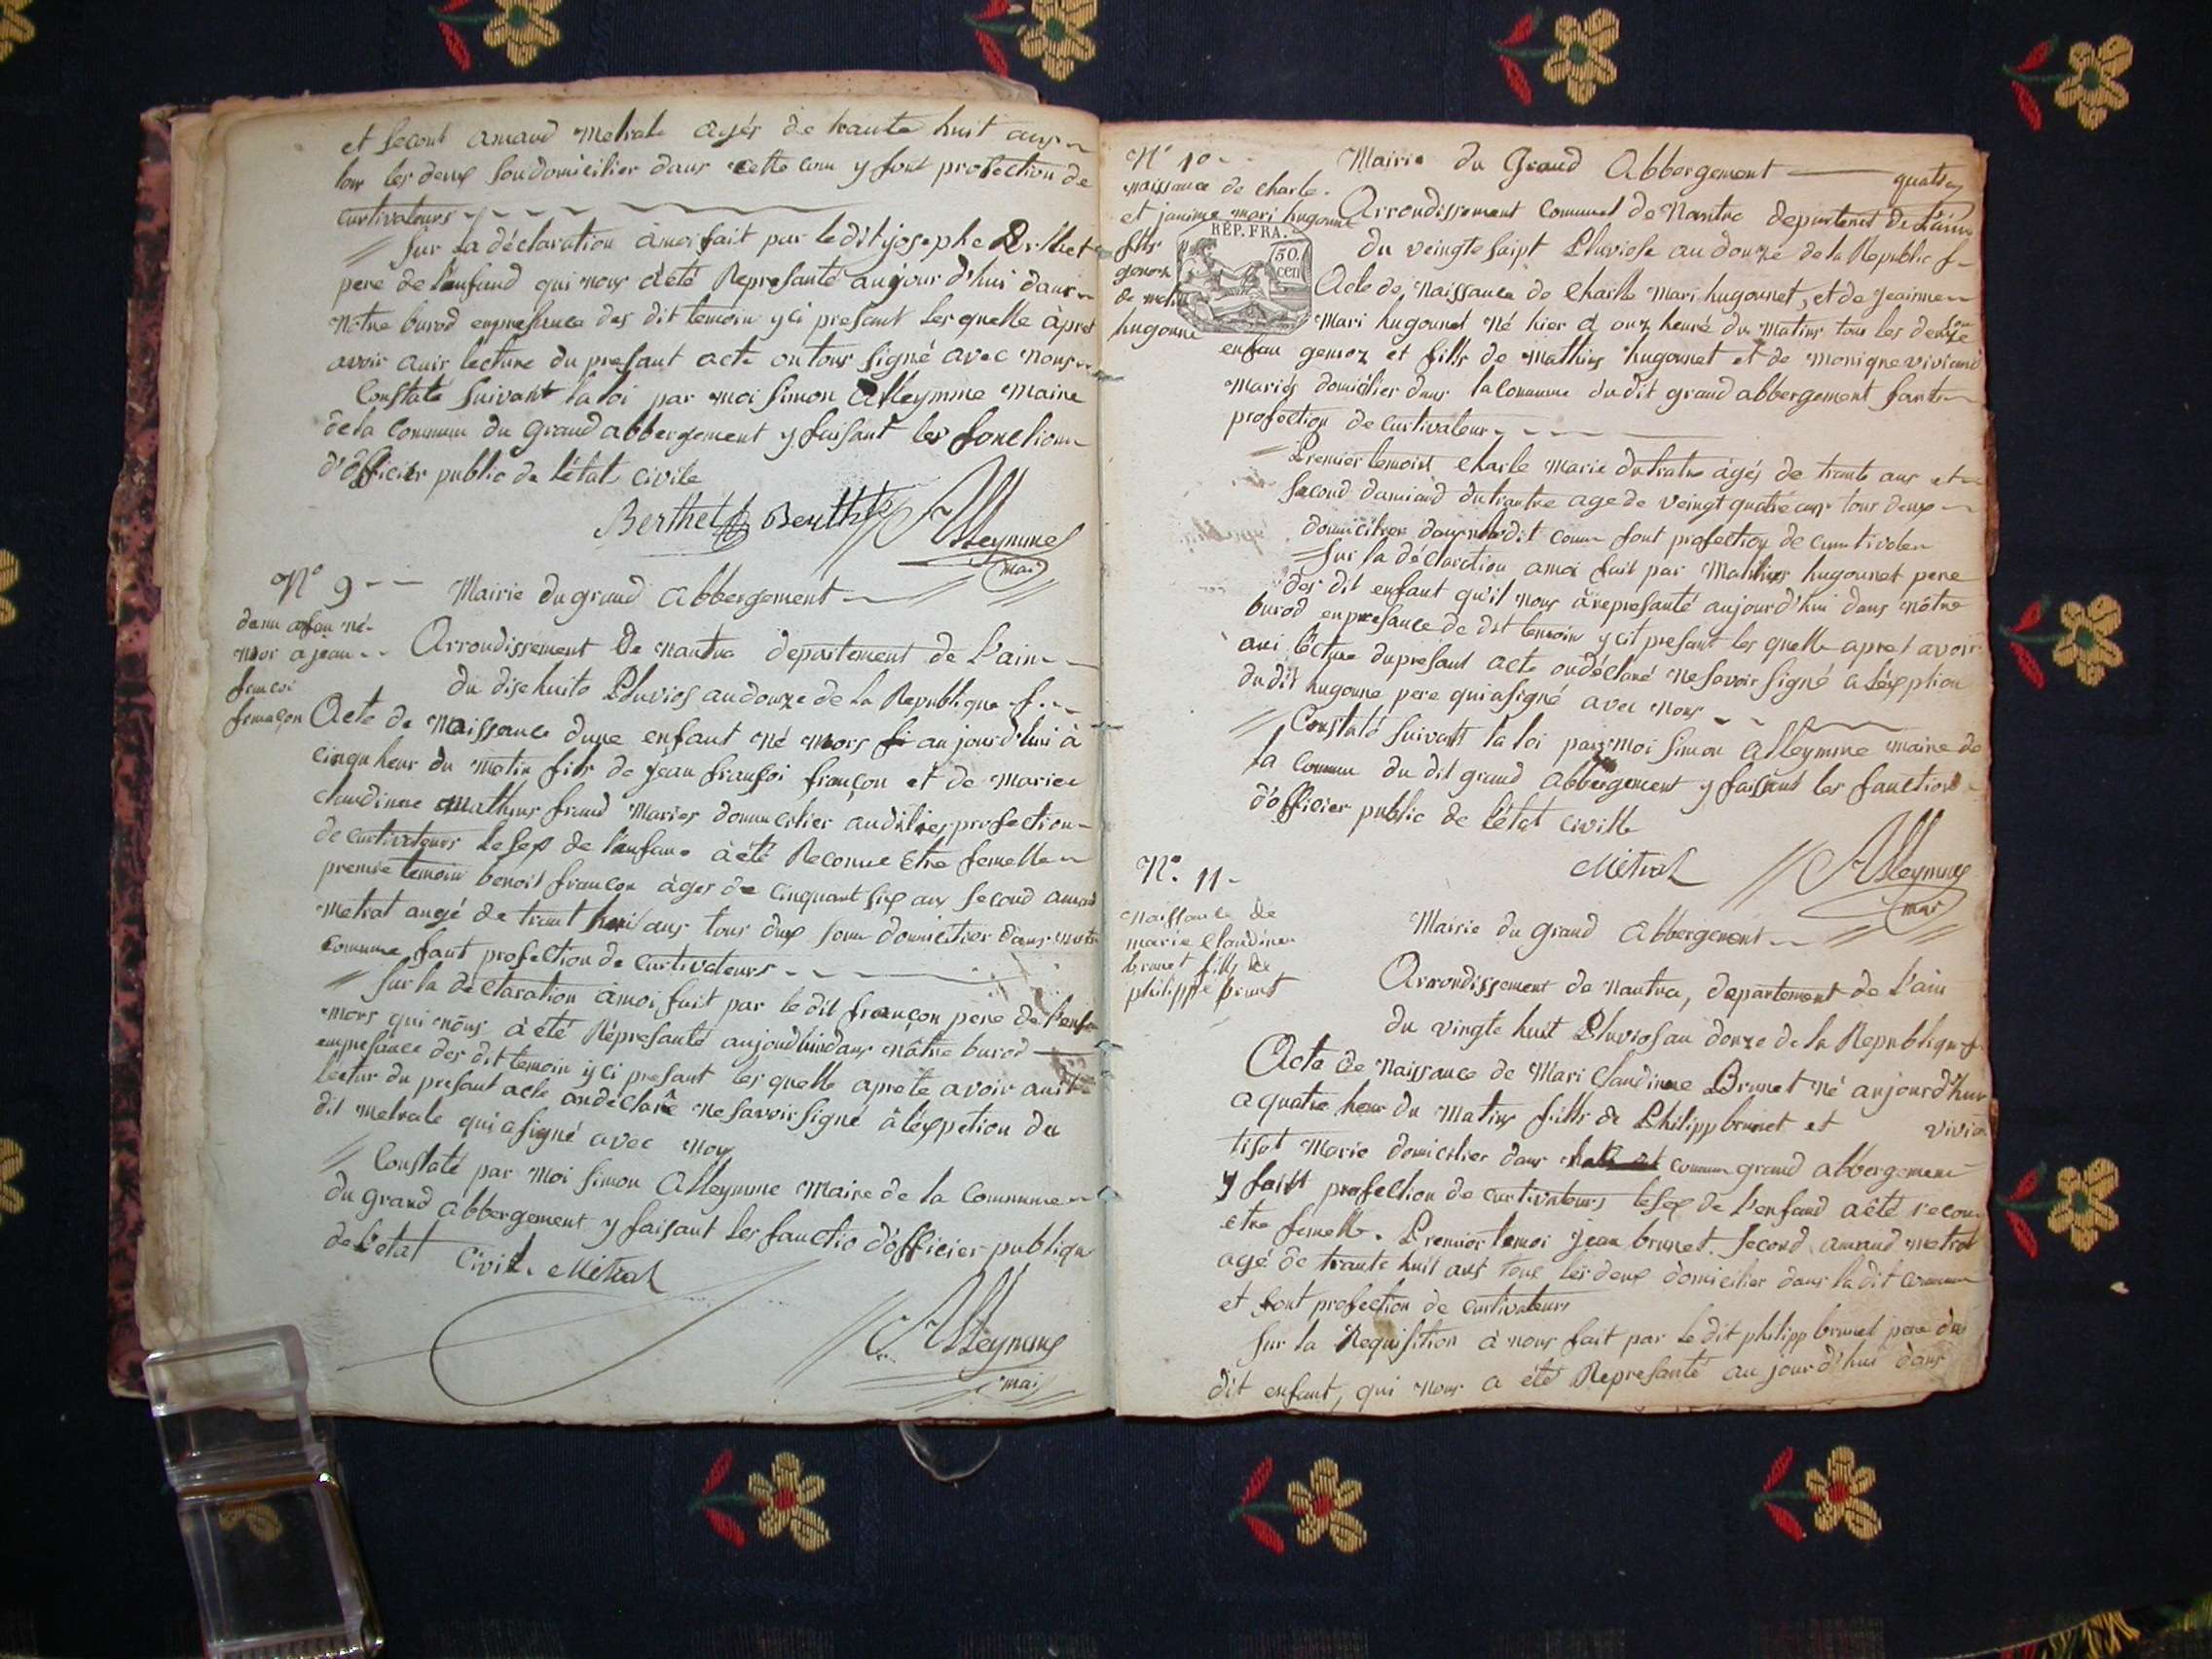 et second amand Metrale agés de trante huit ans
tou les deux son domicilier dans cette com y font profection de
curtivateurs
Sur la déclaration à moi fait par ledit josephe Berthet
pere de l'enfand qui nous a été Represanté aujour d'hui dans
nôtre burod enpresance des dit temoin yci presant lesquelle àpret
avoir auir lecture du presant acte on tous signé avec nous
Constaté suivant la loi par moi Simon Alleymme Maire
de la Commun du Grand abbergement y faisant les fonction
d'officier public de l'état civile
Berthet Berthet Alleymme
mair
N° 9 Mairie du grand abbergement
danu enfan né
mor a jean
francoi
françon
Arrondissement de Nantua département de L'ain
du disehuite Pluvios an douze de la Republique f.
Acte de Naissance dune enfant né mors aujourd'hui à
cinqu heur du matin fils de jean françoi françon et de Marie
claudinne Mathieus frand Maries domicilier audit lies profection
de curtivateurs le sex de l'enfan à été Reconue etre femelle
premie temoin benoit françon àges de cinquant six ans second amand
Metrat augé de trant huit ans tous deux son domicilier dans notre
comune fant profection de curtivateurs
Sur la declaration àmoi fait par le dit françon pere de l'enfan
mors qui noūs à été Répresanté aujourdhui dans nôtre burod
enpresance des dit temoin yci presant les quelle aprete avoir auit
lectur du presant acte on déclaré ne savoir signé à léxpetion du
dit Metrale qui a signé avec nous
Constaté par moi Simon Alleymme Maire de la Commune
du grand abbergement y faisant les fanctio d'officier publique
de l'etat Civil. Métral
Alleymme
mair
N° 10 Mairie du Grand Abbergement quatre
naissance de charle
et janime mari hugonnet
fills
gemoz
de matiu
hugonne
REP. FRA.
50.
cen
Arrondissement Communal de Nantua departemet de L'ain
du veingte saipt Pluviose an douze de la Republic f
Acte de Naissance de Charlle Mari hugounet, et de jeainne
Mari hugounet Né hier à onz heuré du Matins tous les deux
enfan gemoz et fills de Mathius hugounet et de Monique viviand
Mariés domicilier dans la Comune dudit grand abbergement fante
profection de curtivateur
Premier temoint Charle Marie dutratre àgés de trante ans et
second damiand dutrantre age de veingt quatre ans tous deux
domicilier dans ladit comun font profection de curtivateur
Sur la déclaration a moi fait par Mathius hugounet pere
des dit enfant qu'il nous à represanté aujourd'hui dans nôtre
burod enpresance de dit temoin ycit presant les quelle apret avoir
aui lêcture du presant acte on déclaré ne savoir signé a léxption
du dit hugonne pere qui a signé avec nous
Constaté suivant la loi par moi Simon alleymme maire de
la Commun du dit grand abbergement y faissant les fanction
d'officier public de l'état civille
Métral Alleymme
mair
N° 11
Naissance de
marie Claudine
brunet fills de
philippe brunet
Mairie du grand abbergement
Arrondissement de Nantua, departement de L'ain
du vingte huit Pluvios an donze de la Republique f
Acte de Naissance de Mari Claudinne Brunet né aujourd'hui
a quatre heur du Matins fills de Philipp brunet et vivian
tisot Marie domicilier dans comun grand abbergement
y faist profection de curtivateurs le sex de l'enfand a été recon
etre femelle. Premier temoi jean brunet. Second amand metrat
agé de trante huit ans tous les deux domicilier dans ladit commun
et font profection de curtivateurs
Sur la Requisition à nous fait par le dit philipp brunet pere du
dit enfant, qui nous a été Represanté au jourd'hui dans